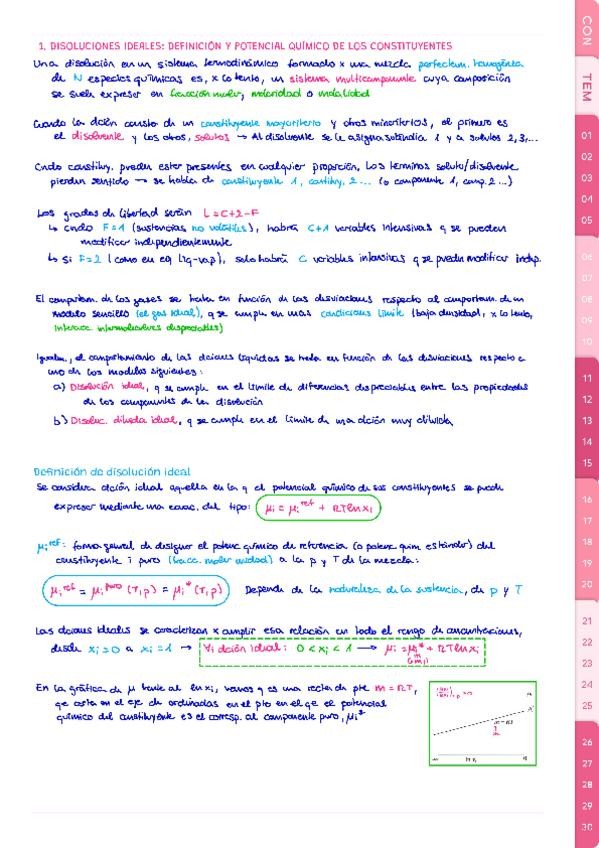 1. DISOLUCIONES IDEALES: DEFINICIÓN Y POTENCIAL QUÍMICO DE LOS CONSTITUYENTES
Una disolución en un sistema termodinámico formado x una mezcla perfectam. homogénea
de N especies químicas es, x lo tanto, un sistema multicomponente cuya composición
se suele expresar en fracción molar, molaridad o molalidad
Cuando la dción consta de un constituyente mayoritario y otros minoritarios, el primero es
el disolvente y los otros, solutos → Al disolvente se le asigna subíndice 1 y a solutos 2,3,...
Cndo constituy. pueden estar presentes en cualquier proporción, los términos soluto/disolvente
pierden sentido → se habla de constituyente 1, constituy. 2 ... (o componente 1, comp. 2 ...)
Los grados de libertad serán L = C+2-F
↳ cndo F=1 (sustancias no volátiles), habrá C+1 variables intensivas q se pueden
modificar independientemente
↳ Si F=2 (como en eq líq-vap), solo habrá C variables intensivas q se pueden modificar indep.
El comportam. de los gases se trata en función de las desviaciones respecto al comportam. de un
modelo sencillo (el gas ideal), q se cumple en unas condiciones límite (baja densidad, x lo tanto,
interacc. intermoleculares despreciables)
Igualm., el comportamiento de las dciones líquidas se trata en función de las desviaciones respecto a
uno de los modelos siguientes:
a) Disolución ideal, q se cumple en el límite de diferencias despreciables entre las propiedades
de los componentes de la disolución
b) Disoluc. diluida ideal, q se cumple en el límite de una dción muy diluida
Definición de disolución ideal
Se considera dción ideal aquella en la q el potencial químico de sus constituyentes se puede
expresar mediante una ecuac. del tipo: μi = μi^ref + RT ln xi
μi^ref: forma general de designar el potenc químico de referencia (o potenc quím estándar) del
constituyente i puro (fracc. molar unidad) a la p y T de la mezcla:
μi^ref = μi^puro (T,p) = μi* (T,p) Depende de la naturaleza de la sustancia, de p y T
Las dciones ideales se caracterizan x cumplir esa relación en todo el rango de concentraciones,
desde xi=0 a xi=1 → ∀i dción ideal: 0 < xi < 1 → μi = μi* + RT ln xi
En la gráfica de μ frente al ln xi, vemos q es una recta de pte m = RT,
qe corta en el eje de ordinadas en el pto en el qe el potencial
químico del constituyente es el corresp. al componente puro, μi*
m = RT
CON
TEM
01
02
03
04
05
06
07
08
09
10
11
12
13
14
15
16
17
18
19
20
21
22
23
24
25
26
27
28
29
30